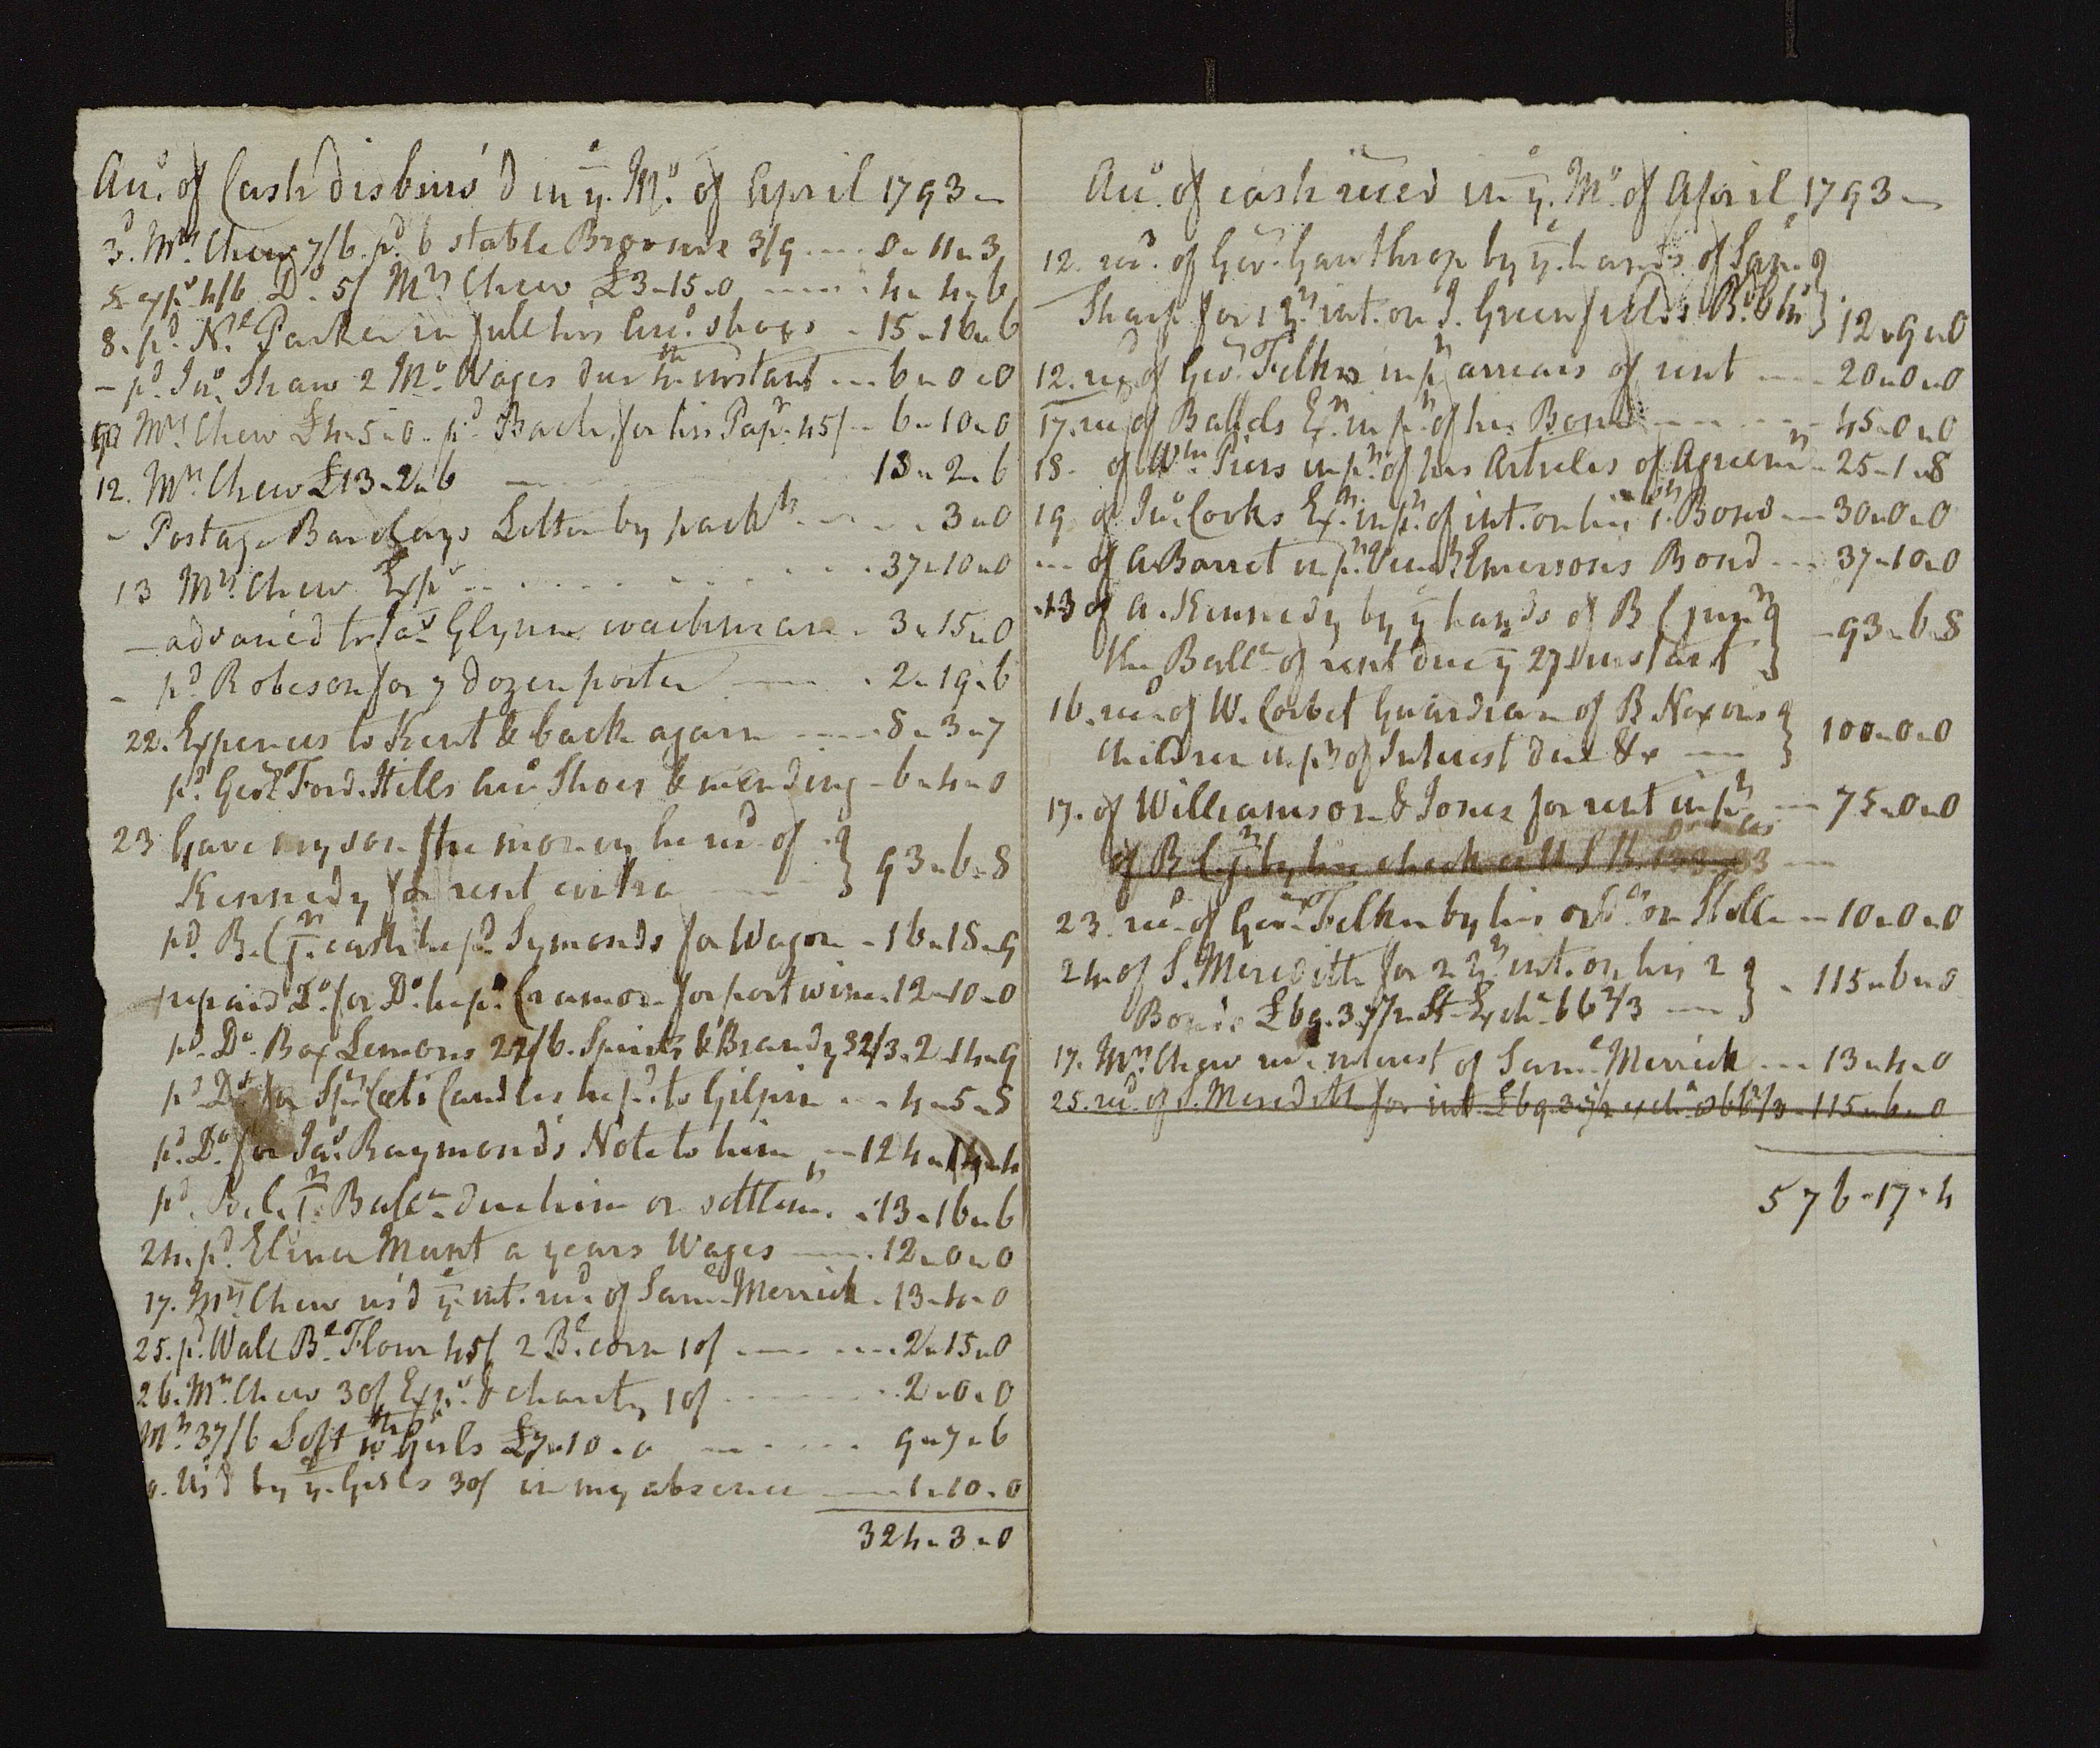 Acco. of Cash disburs'd in ye. Mo. of April 1793
3d. Mrs. Chew 7/6. pd. 6 stable Brooms 3/9 0-11-3
5 exps 4/6 Do. 5/ Mrs. Chew £3-15-0 4-4-6
8. pd. Nl. Parker in full his Acco. shoes 15-16-6
- pd. Jno. Shaw 2 Mo. Wages due instant 6-0-0
Mrs. Chew £4-5-0. pd. Bache for his Papr. 45/ 6-10-0
12. Mrs. Chew £13-2-6 13-2-6
- Postage Barclays Letter by packt 3-0
13 Mrs. Chew Exps 37-10-0
- advanc'd to Jas. Glynn coachman 3-15-0
- pd. Robeson for 7 dozen porter 2-19-6
22. Expences to Kent & back again 8-3-7
pd. Geo. Ford. Hills Acco Shoes & mending 6-4-0
23 Gave my son the money he recd. of
Kennedy for rent contra 93-6-8
pd. B. C. Jr. cash he pd. Symonds for Wagon 16-18-9
repaid Do. for Do. he pd. Cramond for port wine 12-10-0
pd. Do. Box Lemons 22/6. Spirits & Brandy 32/3 2-14-9
pd. Do. for Sper. Caeti Candles he pd. to Gilpin 4-5-8
pd. Do. for Jas. Raymond's Note to him 124-14-4
pd. B. C. Jr. Balce. due him on settlemt. 13-16-6
24. pd. Elinor Mant a years Wages 12-0-0
17. Mrs. Chew us'd ye. int. recd. of Saml. Merrick 13-4-0
25. pd. Wall Bl. Flour 45/ 2 Bl. corn 10/ 2-15-0
26. Mrs. Chew 30/ Exps. & charity 10/ 2-0-0
Mrs 37/6 Left wth Girls £7-10-0 9-7-6
Us'd by ye. Girls 30/ in my absence 1-10-0
324-3-0
Acco. of cash reced in ye. Mo. of April 1793
12. recd. of Geo. Gawthrop by ye. hands of Saml.
Sharp for 1 yrs. int. on J. Greenfields Bo. 12-9-0
12. recd of Geo. Felker in pt arrears of rent 20-0-0
17. recd of Ballds Exr. in pt. of his Bond 45-0-0
18. of Wm. Piers in pt. of his Articles of Agreemt 25-1-8
19 of Jno. Cooks Exr. in pt. of int. on his 1st. Bond 30-0-0
of A. Barret in pt. Emersons Bond 37-10-0
13 of A. Kennedy by ye hands of B C junr
the Balle. of rent due ye 27 instant 93-6-8
16. recd. of W. Corbet Guardian of B. Noxons
children in pt of Interest due &c 100-0-0
17. of Williamson & Jones for rent in pt 75-0-0
of B C Jr. by his check
23. recd. of Geo. Felker by his ordr. on Stille 10-0-0
24. of S. Meredith for 2 yrs. int. on his 2
Bonds £69.3.7/2 St. Exche. 66 2/3 115-6-0
17. Mrs. Chew recd. interest of Saml. Merrick 13-4-0
25. recd. of S. Meredith for int. £69.3.7/2 exche. 66 2/3 115-6-0
576-17-4